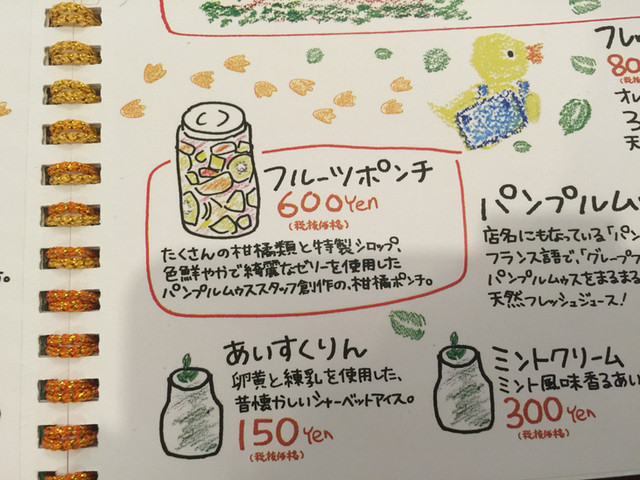 フルーツポンチ
600Yen
(税抜価格)
たくさんの柑橘類と特製シロップ、
色鮮やかで綺麗なゼリーを使用した
パンプルムゥススタッフ創作の、柑橘ポンチ。
フレッ
80
オレ
天
パンプルム
店名にもなっている「パン
フランス語で、「グレープフ
パンプルムゥスをまるまる
天然フレッシュジュース!
あいすくりん
卵黄と練乳を使用した、
昔懐かしいシャーベットアイス。
150Yen
(税抜価格)
ミントクリーム
ミント風味香るあい
300Yen
(税抜価格)